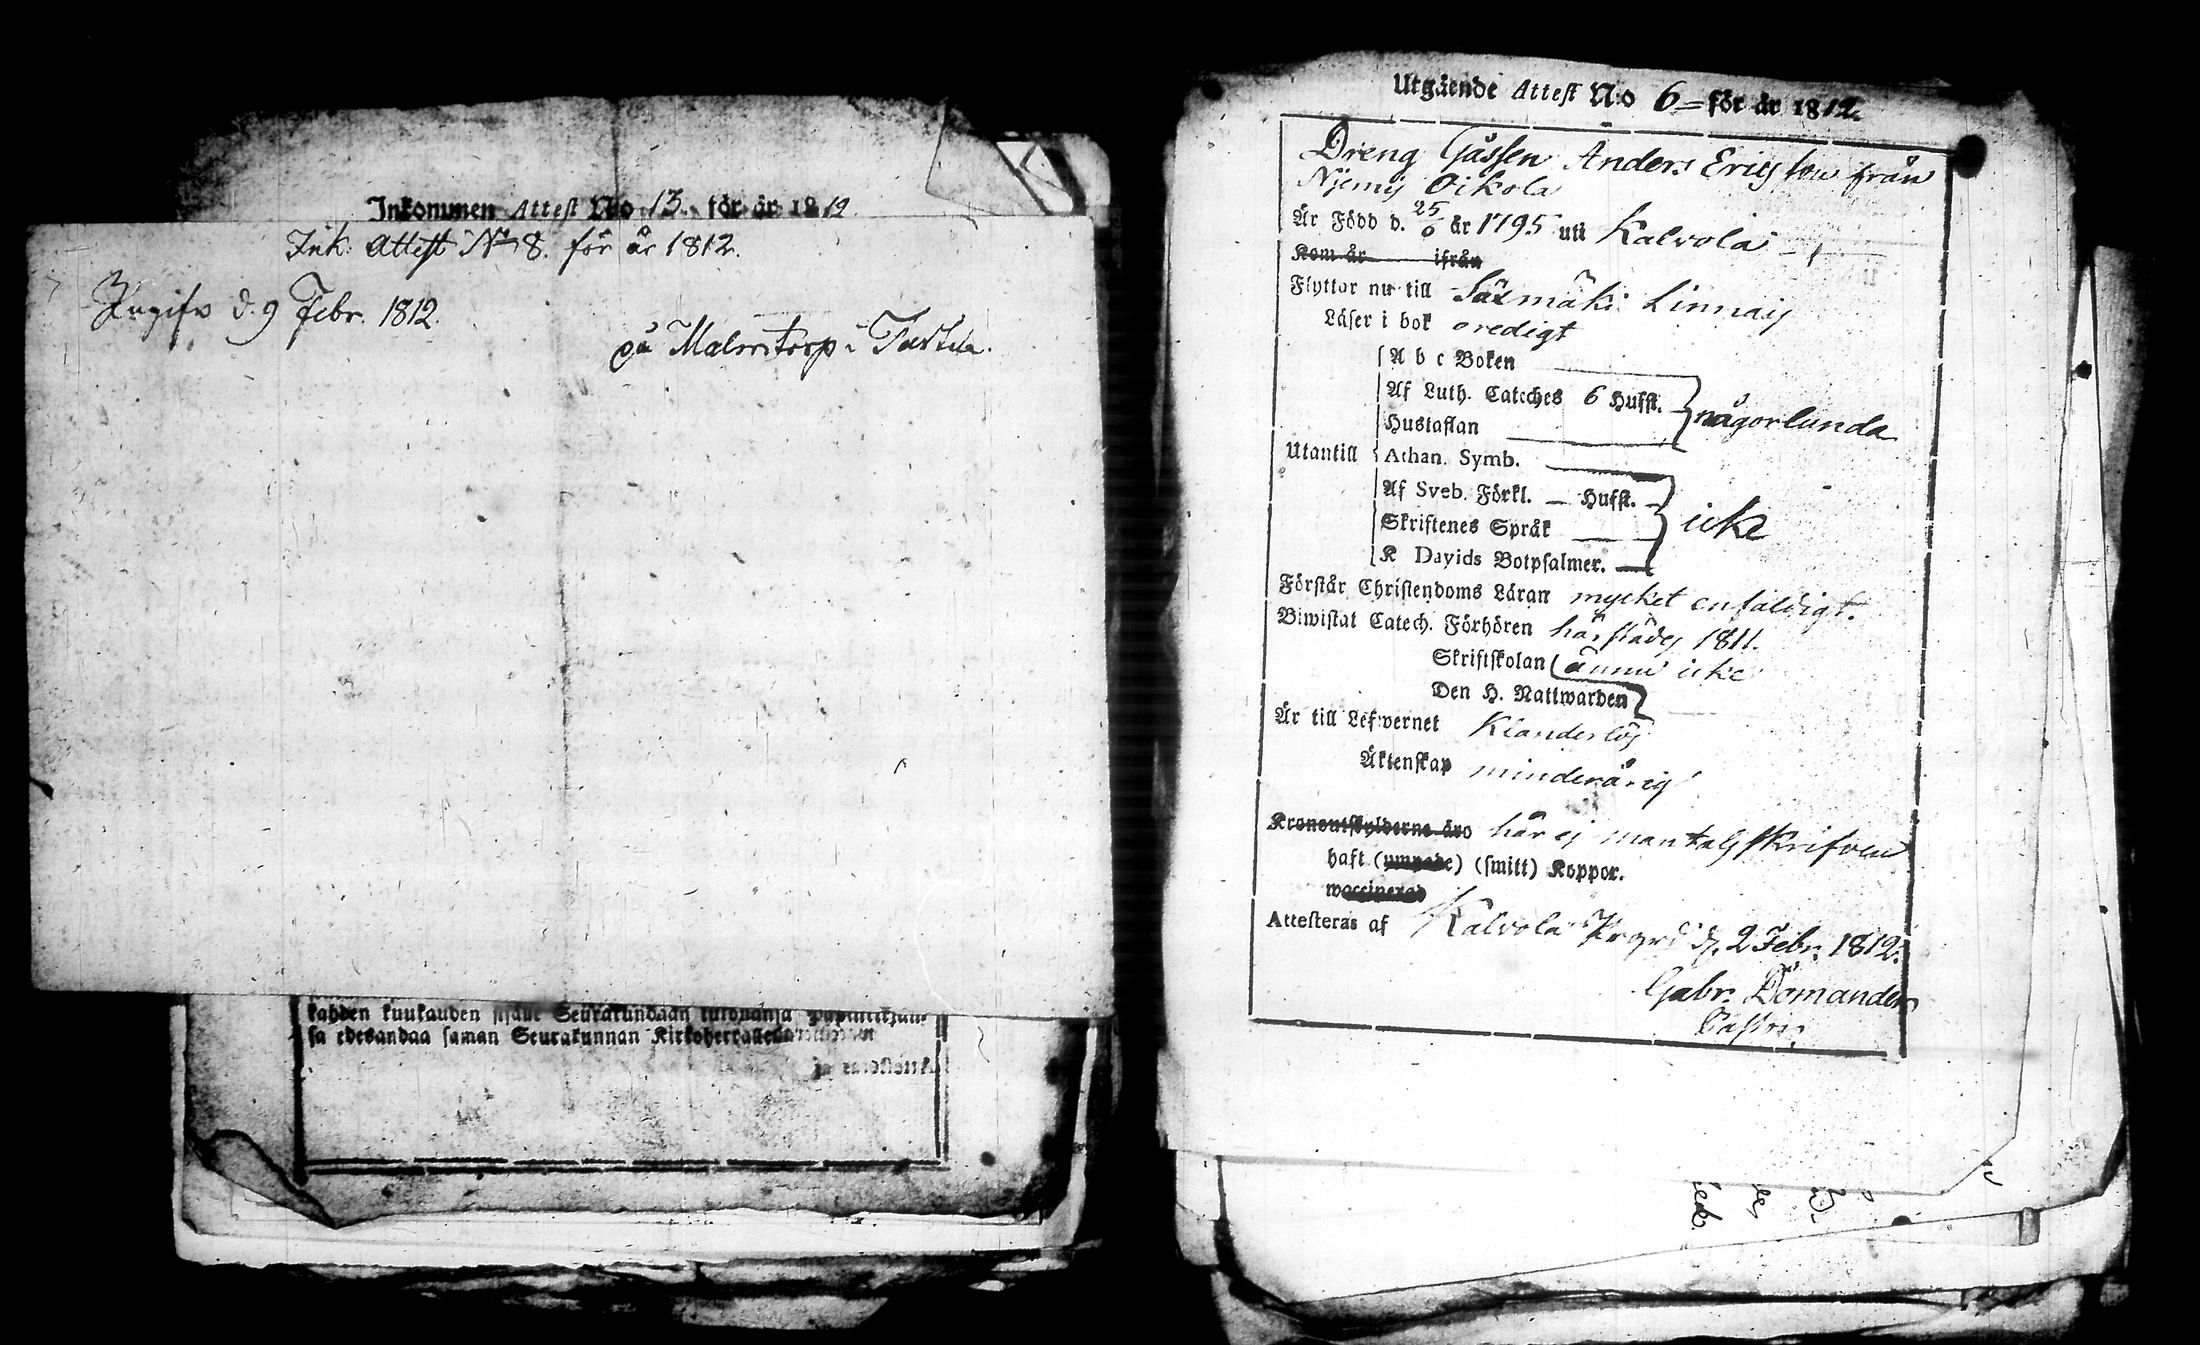 Inkommen Attest No 13. för år 1819.
Ink: Attest No 8. för år 1812.
d. 9 Febr. 1812.
på Malmtorp i
kahden kuukauden sisälle Seurakundaan
sa edesandaa saman Seurakunnan Kirkoherralle
Utgående Attest N:o 6 för år 1812.
Dreng Gåssen Anders Ericsson från
Niemis Oikola
Är Född d. 25/0 år 1795 uti Kalvola
Kom år ifrån
Flyttar nu till Säxmäki Linnais
Läser i bok oredigt
A b c Boken
Af Luth. Cateches 6 Hufst.
Hustaflan
någorlunda
Utantill
Athan. Symb.
Af Sveb. Förkl. — Hufst.
Skriftenes Språk
icke
K Davids Botpsalmer.
Förstår Christendoms Läran mycket enfaldigt.
Biwistat Catech. Förhören härstädes 1811.
Skriftskolan ännu icke
Den H. Nattwarden
Är till Lefwernet Klanderlös
Äktenskap minderårig
Kronoutskylderne äro här ej mantalsskrifven
haft (ympade) (smitt) Koppor.
waccinerad
Attesteras af Kalvola Prgrd d. 2 Febr. 1812.
Gabr.
Pastor.